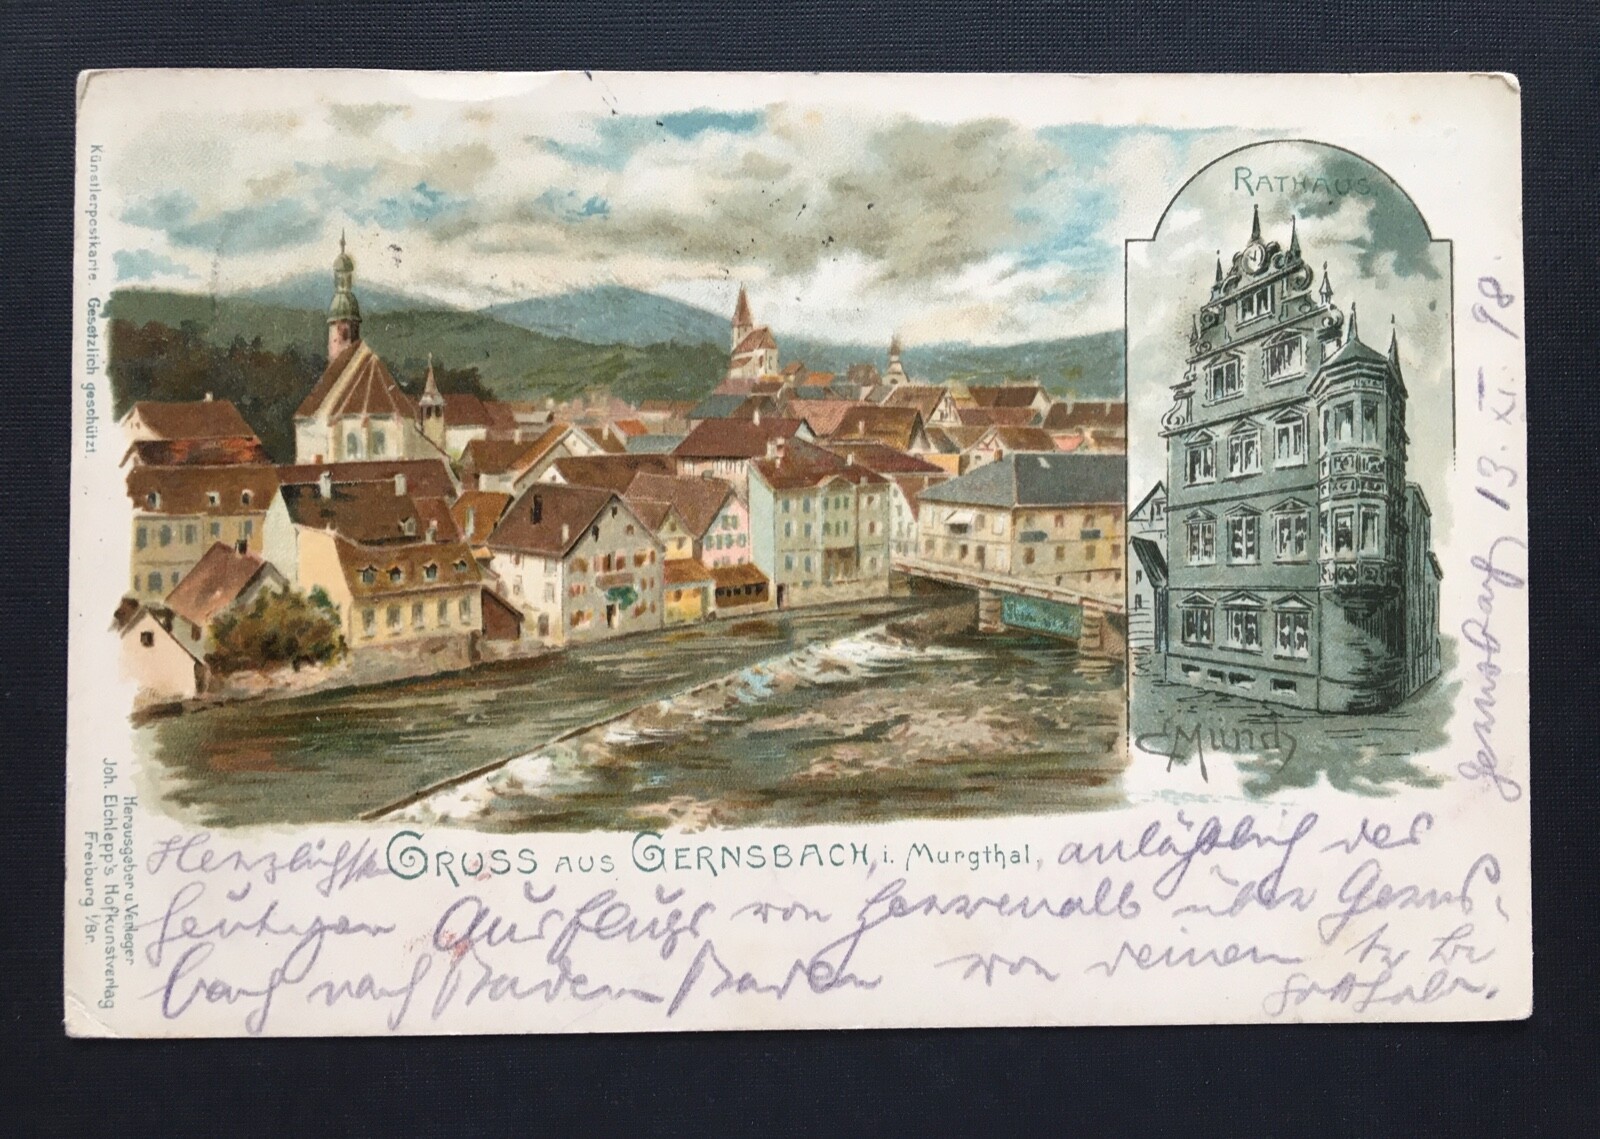 Künstlerpostkarte. Gesetzlich geschützt.
Herausgeber u. Verleger
Joh. Elchlepp's Hofkunstverlag
Freiburg i/Br.
RATHAUS
C Münch
Gernsbach, 13. XI. 98.
Herzlichste GRUSS AUS GERNSBACH, i. Murgthal, anläßlich des
heutigen Ausflugs von Herrenalb über Gerns-
bach nach Baden Baden von deinem